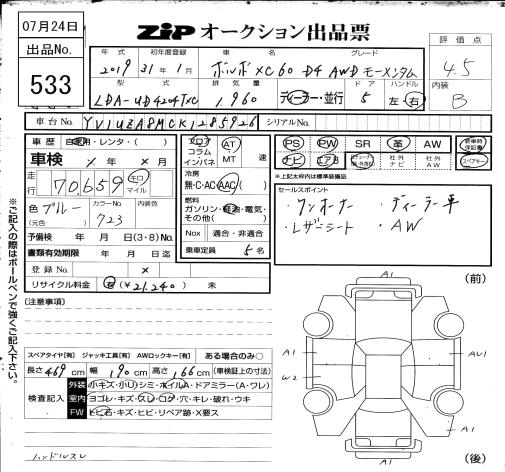 07月24日
出品No.
533
ZiP オークション出品票
年式 初年度登録 車名 グレード
2019 31年1月 ボルボXC60 D4 AWD モーメンタム
評価点
4.5
内装
B
型式 排気量 ドア ハンドル
LDA-UD4204TXC 1,960 ディーラー・並行 5 左・右
車台No. YV1UZA8MCK1285926 シリアルNo.
車歴 自家用・レンタ・( )
車検 × 年 × 月
走行 70,659 キロ マイル
色 ブルー カラーNo. 723 内装色
(元色)
予備検 年 月 日(3・8)No.
書類有効期限 年 月 日迄
登録No. ×
リサイクル料金 有(¥21,240) 未
フロア コラム インパネ AT MT 速
冷房
無・C・AC・AAC( )
燃料
ガソリン・軽油・電気・その他( )
Nox 適合・非適合
乗車定員 5 名
PS PW SR 革 AW 新車時保証書
ナビ エアB 社外ナビ 社外AW スペアキー
※上記太枠内は標準装備品
セールスポイント
・ワンオーナー ・ディーラー車
・レザーシート ・AW
※ご記入の際はボールペンで強くご記入下さい。
[注意事項]
スペアタイヤ[有] ジャッキ工具[有] AWロックキー[有] ある場合のみ○
長さ 469 cm 幅 190 cm 高さ 166 cm (車検証上の寸法)
検査記入
外装 小キズ・小リ・シミ・ホイルA・ドアミラー(A・ワレ)
室内 ヨゴレ・キズ・スレ・コゲ・穴・キレ・破れ・ウキ
FW トビ石・キズ・ヒビ・リペア跡・X要ス
ハンドルスレ
A1 (前)
A1 AU1
W2
A1 (後)